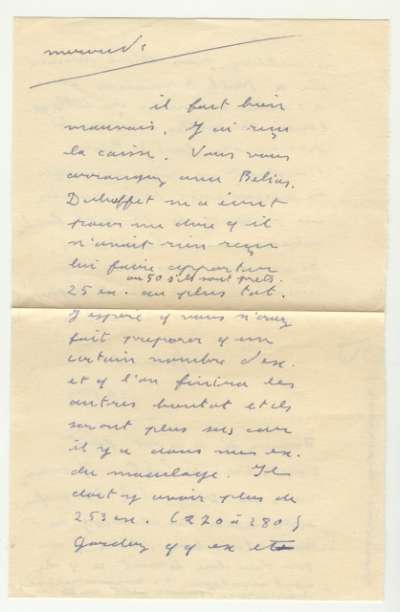 mercredi
il fait bien
mauvais. J'ai reçu
la caisse. Vous vous
arrangez avec Belias.
Dubuffet m'a écrit
pour me dire q il
n'avait rien reçu
lui faire apporter
ou 50 s'ils sont prêts.
25 ex. au plus tot.
J'espère q vous n'avez
fait preparer q un
certain nombre d'ex.
et q l'on finira les
autres bientot et ils
seront plus secs car
il y a dans mes ex.
du maculage. Il
doit y avoir plus de
253 ex. (270 à 280)
Gardez qq ex et